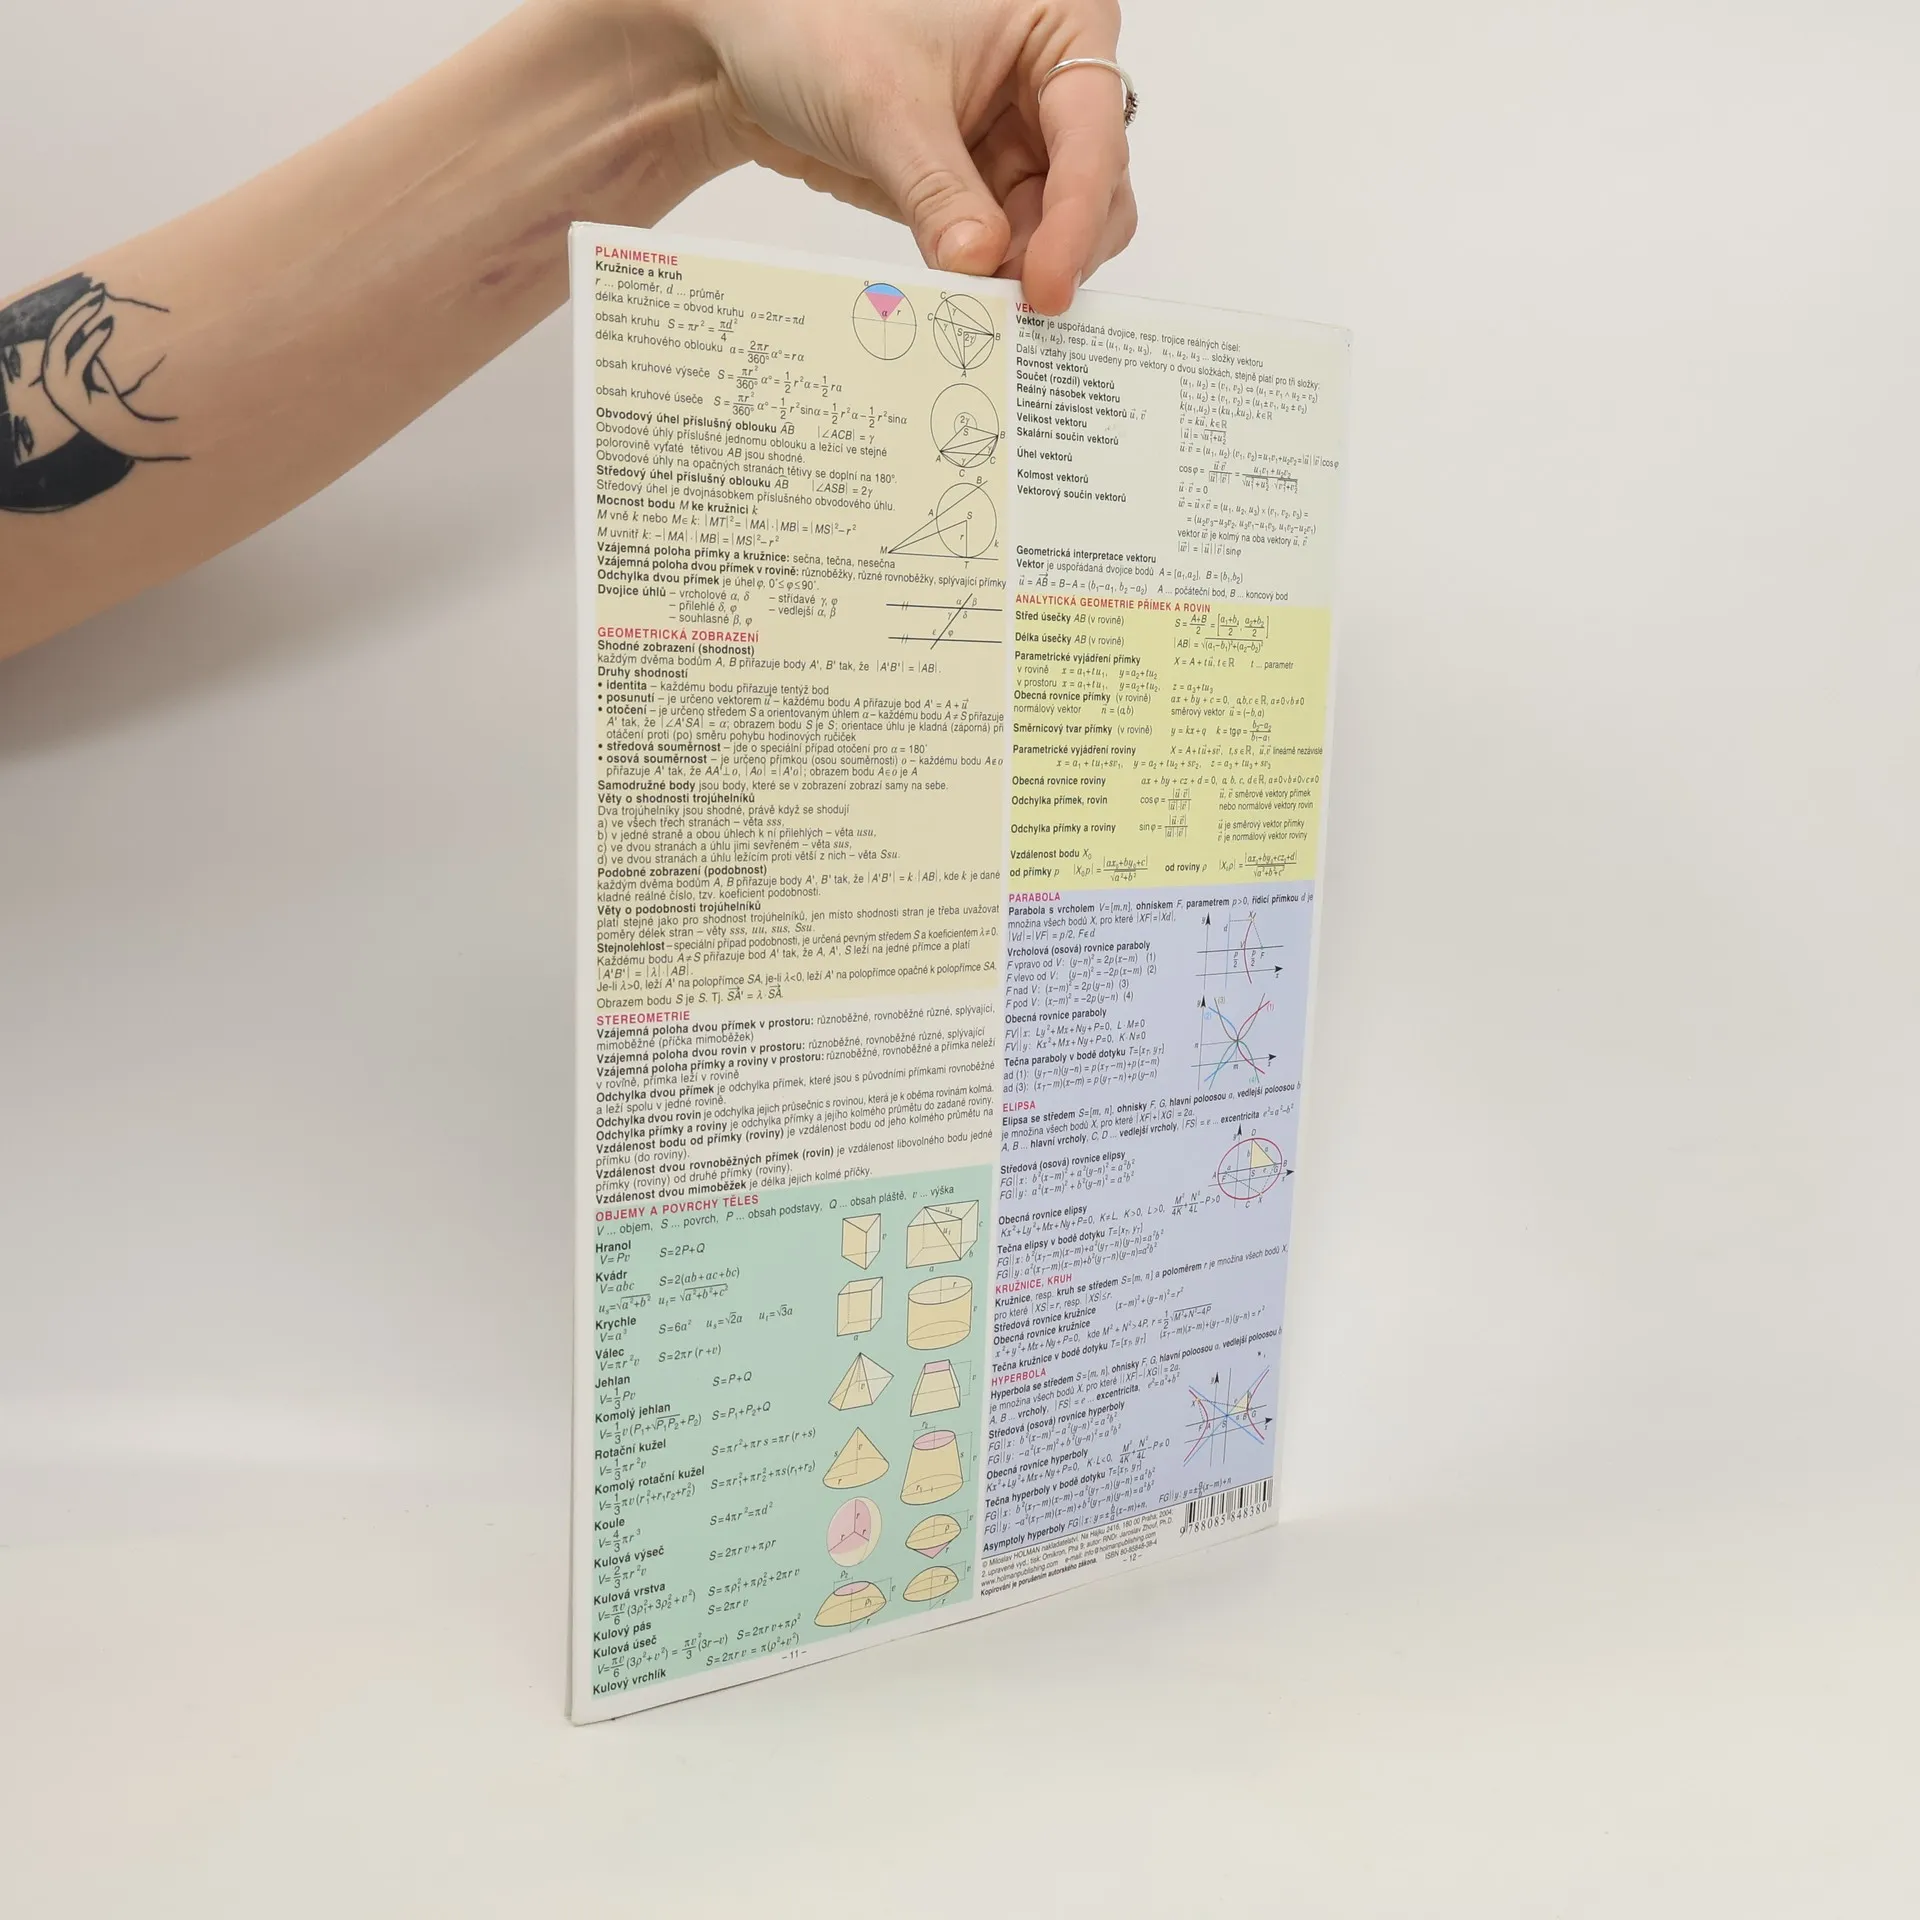 PLANIMETRIE
Kružnice a kruh
r ... poloměr, d ... průměr
délka kružnice = obvod kruhu o=2πr=πd
obsah kruhu S = πr² = πd²/4
délka kruhového oblouku a = 2πr/360° α° = rα
obsah kruhové výseče S = πr²/360° α° = 1/2 r²α = 1/2 ra
obsah kruhové úseče S = πr²/360° α° – 1/2 r² sinα = 1/2 r²α – 1/2 r² sinα
Obvodový úhel příslušný oblouku AB |∠ACB| = γ
Obvodové úhly příslušné jednomu oblouku a ležící ve stejné
polorovině vyťaté tětivou AB jsou shodné.
Obvodové úhly na opačných stranách tětivy se doplní na 180°.
Středový úhel příslušný oblouku AB |∠ASB| = 2γ
Středový úhel je dvojnásobkem příslušného obvodového úhlu.
Mocnost bodu M ke kružnici k
M vně k nebo M∈k: |MT|² = |MA|·|MB| = |MS|² – r²
M uvnitř k: –|MA|·|MB| = |MS|² – r²
Vzájemná poloha přímky a kružnice: sečna, tečna, nesečna
Vzájemná poloha dvou přímek v rovině: různoběžky, různé rovnoběžky, splývající přímky
Odchylka dvou přímek je úhel φ, 0°≤φ≤90°.
Dvojice úhlů – vrcholové α, δ – střídavé γ, φ
– přilehlé δ, φ – vedlejší α, β
– souhlasné β, φ
GEOMETRICKÁ ZOBRAZENÍ
Shodné zobrazení (shodnost)
každým dvěma bodům A, B přiřazuje body A', B' tak, že |A'B'| = |AB|.
Druhy shodnosti
• identita – každému bodu přiřazuje tentýž bod
• posunutí – je určeno vektorem u – každému bodu A přiřazuje bod A' = A + u
• otočení – je určeno středem S a orientovaným úhlem α – každému bodu A≠S přiřazuje
A' tak, že |∠A'SA| = α; obrazem bodu S je S; orientace úhlu je kladná (záporná) při
otáčení proti (po) směru pohybu hodinových ručiček
• středová souměrnost – jde o speciální případ otočení pro α = 180°
• osová souměrnost – je určeno přímkou (osou souměrnosti) o – každému bodu A∉o
přiřazuje A' tak, že AA'⊥o, |Ao| = |A'o|; obrazem bodu A∈o je A
Samodružné body jsou body, které se v zobrazení zobrazí samy na sebe.
Věty o shodnosti trojúhelníků
Dva trojúhelníky jsou shodné, právě když se shodují
a) ve všech třech stranách – věta sss,
b) v jedné straně a obou úhlech k ní přilehlých – věta usu,
c) ve dvou stranách a úhlu jimi sevřeném – věta sus,
d) ve dvou stranách a úhlu ležícím proti větší z nich – věta Ssu.
Podobné zobrazení (podobnost)
každým dvěma bodům A, B přiřazuje body A', B' tak, že |A'B'| = k·|AB|, kde k je dané
kladné reálné číslo, tzv. koeficient podobnosti.
Věty o podobnosti trojúhelníků
platí stejné jako pro shodnost trojúhelníků, jen místo shodnosti stran je třeba uvažovat
poměry délek stran – věty sss, uu, sus, Ssu.
Stejnolehlost – speciální případ podobnosti, je určená pevným středem S a koeficientem λ≠0.
Každému bodu A≠S přiřazuje bod A' tak, že A, A', S leží na jedné přímce a platí
|A'B'| = |λ|·|AB|.
Je-li λ>0, leží A' na polopřímce SA, je-li λ<0, leží A' na polopřímce opačné k polopřímce SA.
Obrazem bodu S je S. Tj. SA' = λ·SA
STEREOMETRIE
Vzájemná poloha dvou přímek v prostoru: různoběžné, rovnoběžné různé, splývající,
mimoběžné (příčka mimoběžek)
Vzájemná poloha dvou rovin v prostoru: různoběžné, rovnoběžné různé, splývající
Vzájemná poloha přímky a roviny v prostoru: různoběžné, rovnoběžné a přímka neleží
v rovině, přímka leží v rovině
Odchylka dvou přímek je odchylka přímek, které jsou s původními přímkami rovnoběžné
a leží spolu v jedné rovině.
Odchylka dvou rovin je odchylka jejich průsečnic s rovinou, která je k oběma rovinám kolmá.
Odchylka přímky a roviny je odchylka přímky a jejího kolmého průmětu do zadané roviny.
Vzdálenost bodu od přímky (roviny) je vzdálenost bodu od jeho kolmého průmětu na
přímku (do roviny).
Vzdálenost dvou rovnoběžných přímek (rovin) je vzdálenost libovolného bodu jedné
přímky (roviny) od druhé přímky (roviny).
Vzdálenost dvou mimoběžek je délka jejich kolmé příčky.
OBJEMY A POVRCHY TĚLES
V ... objem, S ... povrch, P ... obsah podstavy, Q ... obsah pláště, v ... výška
Hranol
V= Pv S=2P+Q
Kvádr
V= abc S=2(ab+ac+bc)
us=√a²+b² ut=√a²+b²+c²
Krychle
V=a³ S=6a² us=√2a ut=√3a
Válec
V=πr²v S=2πr(r+v)
Jehlan
V=1/3 Pv S=P+Q
Komolý jehlan
V=1/3 v(P₁+√P₁P₂+P₂) S=P₁+P₂+Q
Rotační kužel
V=1/3 πr²v S=πr²+πrs=πr(r+s)
Komolý rotační kužel
V=1/3 πv(r₁²+r₁r₂+r₂²) S=πr₁²+πr₂²+πs(r₁+r₂)
Koule
V=4/3 πr³ S=4πr²=πd²
Kulová výseč
V=2/3 πr²v S=2πrv+πρr
Kulová vrstva
V=πv/6 (3ρ₁²+3ρ₂²+v²) S=πρ₁²+πρ₂²+2πrv
Kulový pás
S=2πrv
Kulová úseč
V=πv/6 (3ρ²+v²) = πv²/3 (3r–v) S=2πrv+πρ²
Kulový vrchlík
S=2πrv = π(ρ²+v²)
– 11 –
Vektor je uspořádaná dvojice, resp. trojice reálných čísel:
u=(u₁, u₂), resp. u = (u₁, u₂, u₃), u₁, u₂, u₃ ... složky vektoru
Další vztahy jsou uvedeny pro vektory o dvou složkách, stejně platí pro tři složky:
Rovnost vektorů (u₁, u₂) = (v₁, v₂) ⇔ (u₁ = v₁ ∧ u₂ = v₂)
Součet (rozdíl) vektorů (u₁, u₂) ± (v₁, v₂) = (u₁±v₁, u₂±v₂)
Reálný násobek vektoru k(u₁,u₂)=(ku₁,ku₂), k∈R
Lineární závislost vektorů u, v v = ku, k∈R
Velikost vektoru |u|=√u₁²+u₂²
Skalární součin vektorů u·v = (u₁, u₂)·(v₁, v₂)=u₁v₁+u₂v₂=|u||v|cosφ
Úhel vektorů cosφ = u·v/|u||v| = u₁v₁+u₂v₂/√u₁²+u₂²·√v₁²+v₂²
Kolmost vektorů u·v = 0
Vektorový součin vektorů w = u×v = (u₁, u₂, u₃) × (v₁, v₂, v₃) =
= (u₂v₃–u₃v₂, u₃v₁–u₁v₃, u₁v₂–u₂v₁)
vektor w je kolmý na oba vektory u, v
|w| = |u||v|sinφ
Geometrická interpretace vektoru
Vektor je uspořádaná dvojice bodů A = [a₁,a₂], B = [b₁,b₂]
u = AB = B–A = (b₁–a₁, b₂–a₂) A ... počáteční bod, B ... koncový bod
ANALYTICKÁ GEOMETRIE PŘÍMEK A ROVIN
Střed úsečky AB (v rovině) S = A+B/2 = [a₁+b₁/2, a₂+b₂/2]
Délka úsečky AB (v rovině) |AB| = √(a₁–b₁)²+(a₂–b₂)²
Parametrické vyjádření přímky X = A + tu, t∈R t ... parametr
v rovině x = a₁+tu₁, y=a₂+tu₂
v prostoru x = a₁+tu₁, y=a₂+tu₂, z = a₃+tu₃
Obecná rovnice přímky (v rovině) ax + by + c = 0, a,b,c∈R, a≠0∨b≠0
normálový vektor n = (a,b) směrový vektor u = (–b,a)
Směrnicový tvar přímky (v rovině) y = kx+q k = tgφ = b₂–a₂/b₁–a₁
Parametrické vyjádření roviny X = A+tu+sv, t,s∈R, u,v lineárně nezávislé
x = a₁ + tu₁+sv₁, y = a₂ + tu₂ + sv₂, z = a₃ + tu₃ + sv₃
Obecná rovnice roviny ax + by + cz + d = 0, a, b, c, d∈R, a≠0∨b≠0∨c≠0
Odchylka přímek, rovin cosφ = |u·v|/|u||v| u, v směrové vektory přímek
nebo normálové vektory rovin
Odchylka přímky a roviny sinφ = |u·v|/|u||v| u je směrový vektor přímky
v je normálový vektor roviny
Vzdálenost bodu X₀
od přímky p |X₀p| = |ax₀+by₀+c|/√a²+b² od roviny ρ |X₀ρ| = |ax₀+by₀+cz₀+d|/√a²+b²+c²
PARABOLA
Parabola s vrcholem V=[m,n], ohniskem F, parametrem p>0, řídicí přímkou d je
množina všech bodů X, pro které |XF|=|Xd|,
|Vd|=|VF| = p/2, F∉d
Vrcholová (osová) rovnice paraboly
F vpravo od V: (y–n)² = 2p(x–m) (1)
F vlevo od V: (y–n)² = –2p(x–m) (2)
F nad V: (x–m)² = 2p(y–n) (3)
F pod V: (x–m)² = –2p(y–n) (4)
Obecná rovnice paraboly
FV||x: Ly²+Mx+Ny+P=0, L·M≠0
FV||y: Kx²+Mx+Ny+P=0, K·N≠0
Tečna paraboly v bodě dotyku T=[xT, yT]
ad (1): (yT–n)(y–n) = p(xT–m)+p(x–m)
ad (3): (xT–m)(x–m) = p(yT–n)+p(y–n)
ELIPSA
Elipsa se středem S=[m, n], ohnisky F, G, hlavní poloosou a, vedlejší poloosou b
je množina všech bodů X, pro které |XF|+|XG| = 2a.
A, B ... hlavní vrcholy, C, D ... vedlejší vrcholy, |FS| = e ... excentricita e²=a²–b²
Středová (osová) rovnice elipsy
FG||x: b²(x–m)² + a²(y–n)² = a²b²
FG||y: a²(x–m)² + b²(y–n)² = a²b²
Obecná rovnice elipsy
Kx²+Ly²+Mx+Ny+P=0, K≠L, K>0, L>0, M²/4K+N²/4L–P>0
Tečna elipsy v bodě dotyku T=[xT, yT]
FG||x: b²(xT–m)(x–m)+a²(yT–n)(y–n)=a²b²
FG||y: a²(xT–m)(x–m)+b²(yT–n)(y–n)=a²b²
KRUŽNICE, KRUH
Kružnice, resp. kruh se středem S=[m, n] a poloměrem r je množina všech bodů X,
pro které |XS|=r, resp. |XS|≤r.
Středová rovnice kružnice (x–m)²+(y–n)²=r²
Obecná rovnice kružnice
x²+y²+Mx+Ny+P=0, kde M²+N²>4P, r=1/2√M²+N²–4P
Tečna kružnice v bodě dotyku T=[xT, yT] (xT–m)(x–m)+(yT–n)(y–n)=r²
HYPERBOLA
Hyperbola se středem S=[m, n], ohnisky F, G, hlavní poloosou a, vedlejší poloosou b
je množina všech bodů X, pro které ||XF|–|XG|| = 2a.
A, B ... vrcholy, |FS| = e ... excentricita, e²=a²+b²
Středová (osová) rovnice hyperboly
FG||x: b²(x–m)²–a²(y–n)²=a²b²
FG||y: –a²(x–m)²+b²(y–n)²=a²b²
Obecná rovnice hyperboly
Kx²+Ly²+Mx+Ny+P=0, K·L<0, M²/4K+N²/4L–P≠0
Tečna hyperboly v bodě dotyku T=[xT, yT]
FG||x: b²(xT–m)(x–m)–a²(yT–n)(y–n)=a²b²
FG||y: –a²(xT–m)(x–m)+b²(yT–n)(y–n)=a²b²
Asymptoty hyperboly FG||x: y=±b/a(x–m)+n, FG||y: y=±a/b(x–m)+n
© Miloslav HOLMAN nakladatelství, Na Hájku 2416, 180 00 Praha, 2004;
2. upravené vyd.; tisk: Omikron, Pha 9; autor: RNDr. Jaroslav Zhouf, Ph.D.
www.holmanpublishing.com e-mail: info@holmanpublishing.com
Kopírování je porušením autorského zákona. ISBN 80-85848-38-4
9 788085 848380
– 12 –